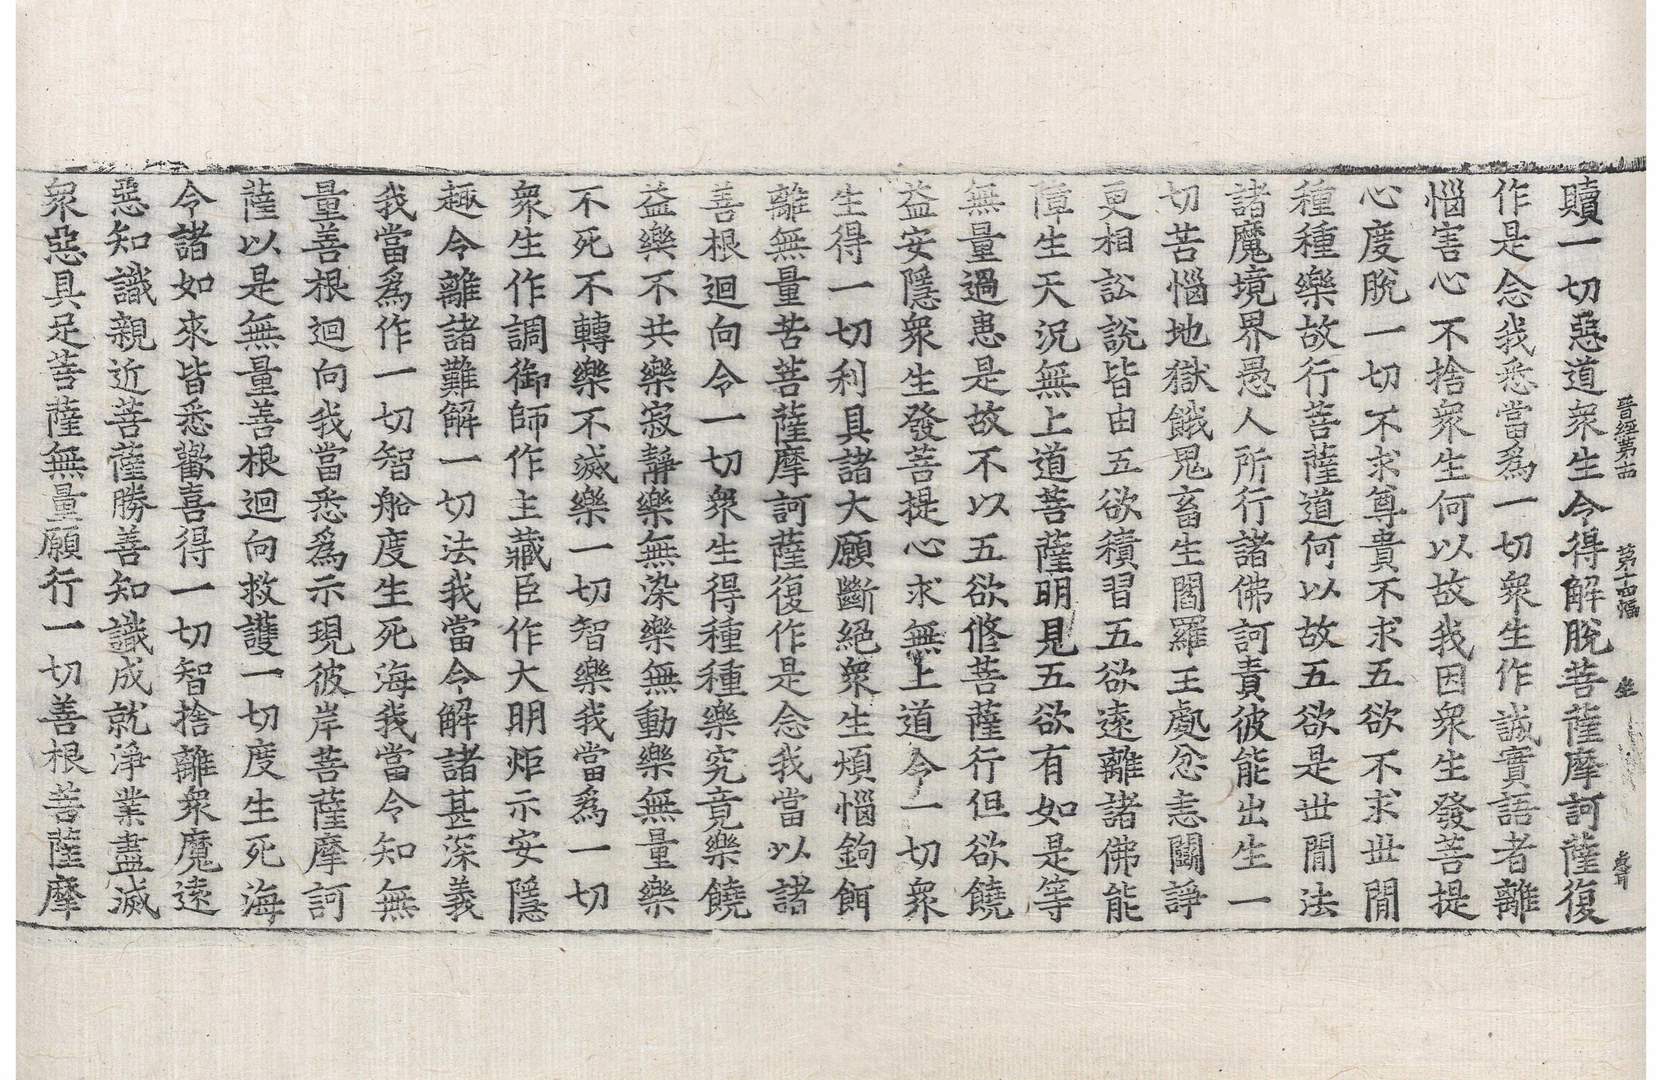 晉經第十四 第十四幅 坐
贖一切惡道衆生令得解脫菩薩摩訶薩復
作是念我悉當爲一切衆生作誠實語者離
惱害心不捨衆生何以故我因衆生發菩提
心度脫一切不求尊貴不求五欲不求世間
種種樂故行菩薩道何以故五欲是世間法
諸魔境界愚人所行諸佛訶責彼能出生一
切苦惱地獄餓鬼畜生閻羅王處忿恚鬪諍
更相訟說皆由五欲積習五欲遠離諸佛能
障生天況無上道菩薩明見五欲有如是等
無量過患是故不以五欲修菩薩行但欲饒
益安隱衆生發菩提心求無上道令一切衆
生得一切利具諸大願斷絕衆生煩惱鉤餌
離無量苦菩薩摩訶薩復作是念我當以諸
善根迴向令一切衆生得種種樂究竟樂饒
益樂不共樂寂靜樂無染樂無動樂無量樂
不死不轉樂不滅樂一切智樂我當爲一切
衆生作調御師作主藏臣作大明炬示安隱
趣令離諸難解一切法我當令解諸甚深義
我當爲作一切智船度生死海我當令知無
量善根迴向我當悉爲示現彼岸菩薩摩訶
薩以是無量善根迴向救護一切度生死海
令諸如來皆悉歡喜得一切智捨離衆魔遠
惡知識親近菩薩勝善知識成就淨業盡滅
衆惡具足菩薩無量願行一切善根菩薩摩